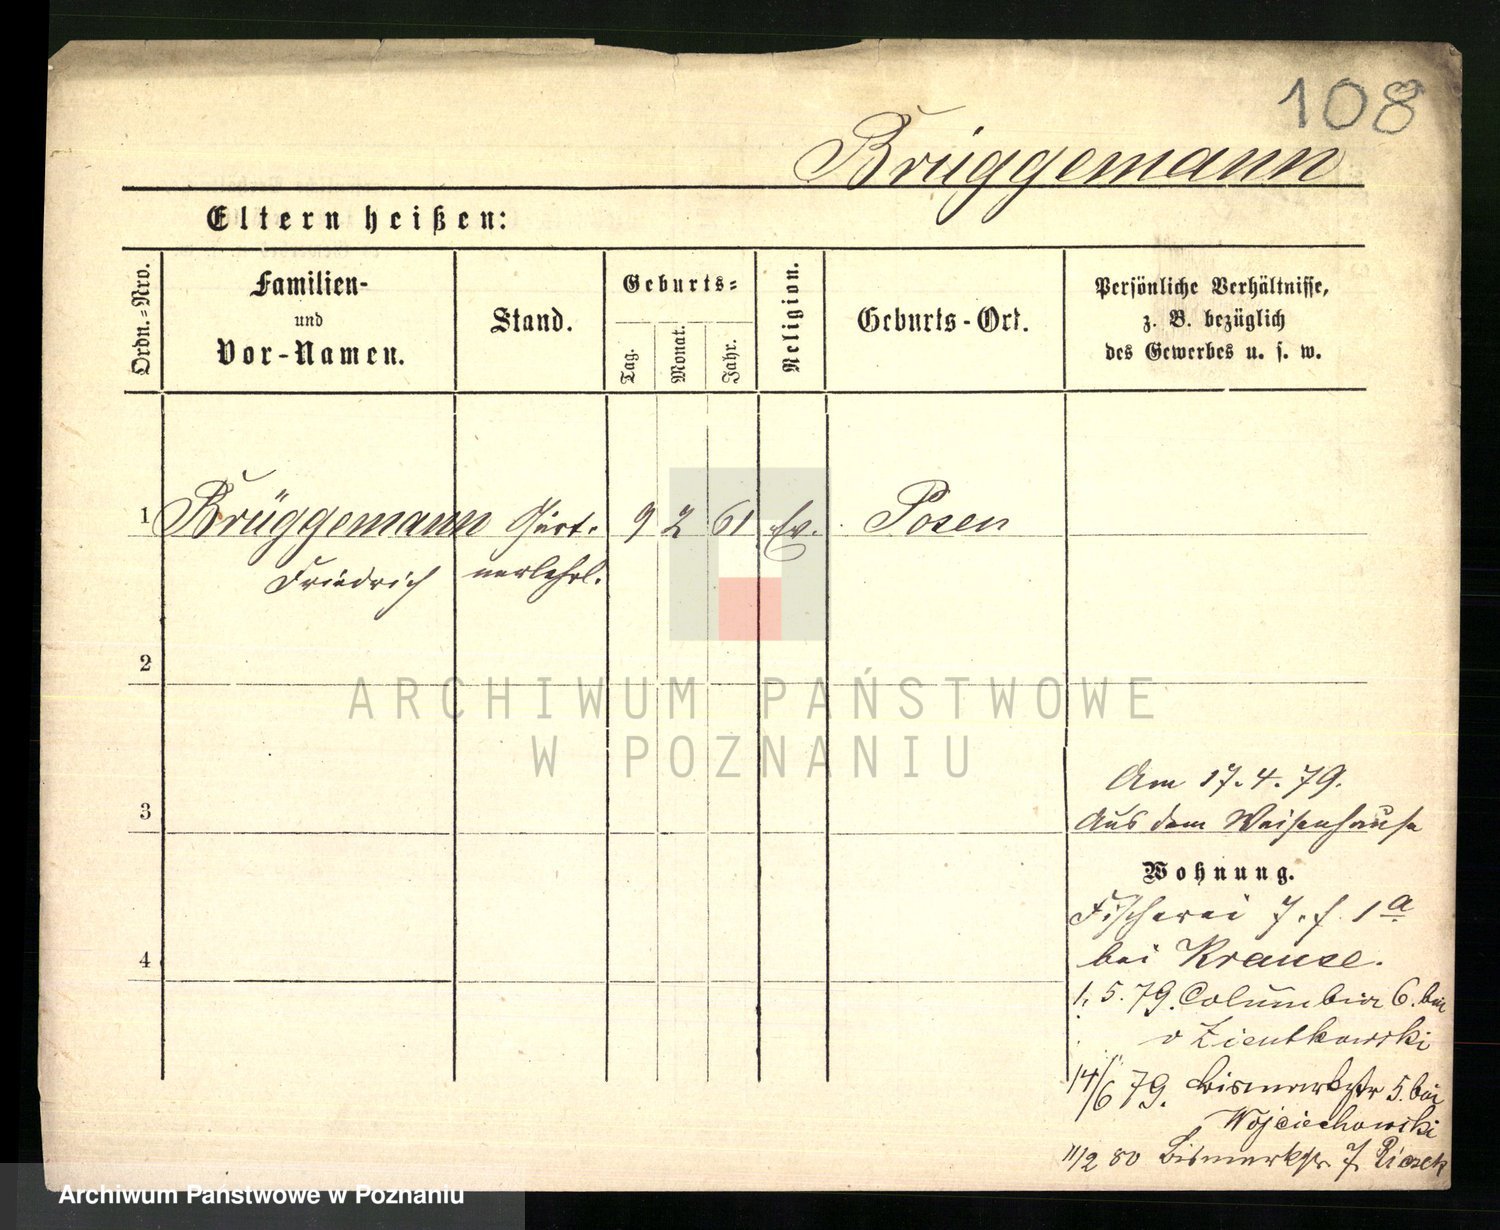 108
Brüggemann
Eltern heißen:
Ordn.-Nro.
Familien-
und
Vor-Namen.
Stand.
Geburts-
Tag.
Monat.
Jahr.
Religion.
Geburts-Ort.
Persönliche Verhältnisse,
z. B. bezüglich
des Gewerbes u. s. w.
1 Brüggemann Gärt- 9 2 61 Ev. Posen
Friedrich nerlehrl.
2
ARCHIWUM PAŃSTWOWE
W POZNANIU
Am 17.4.79.
3 Aus dem Waisenhause
Wohnung.
Fischerei 7. 1a
4 bei Krause.
1. 5. 79. Columbia 6. bei
v Zientkowski
14/6 79. Bismarkstr 5. bei
Wojciechowski
11/2 80 Bismarkstr 7
Archiwum Państwowe w Poznaniu